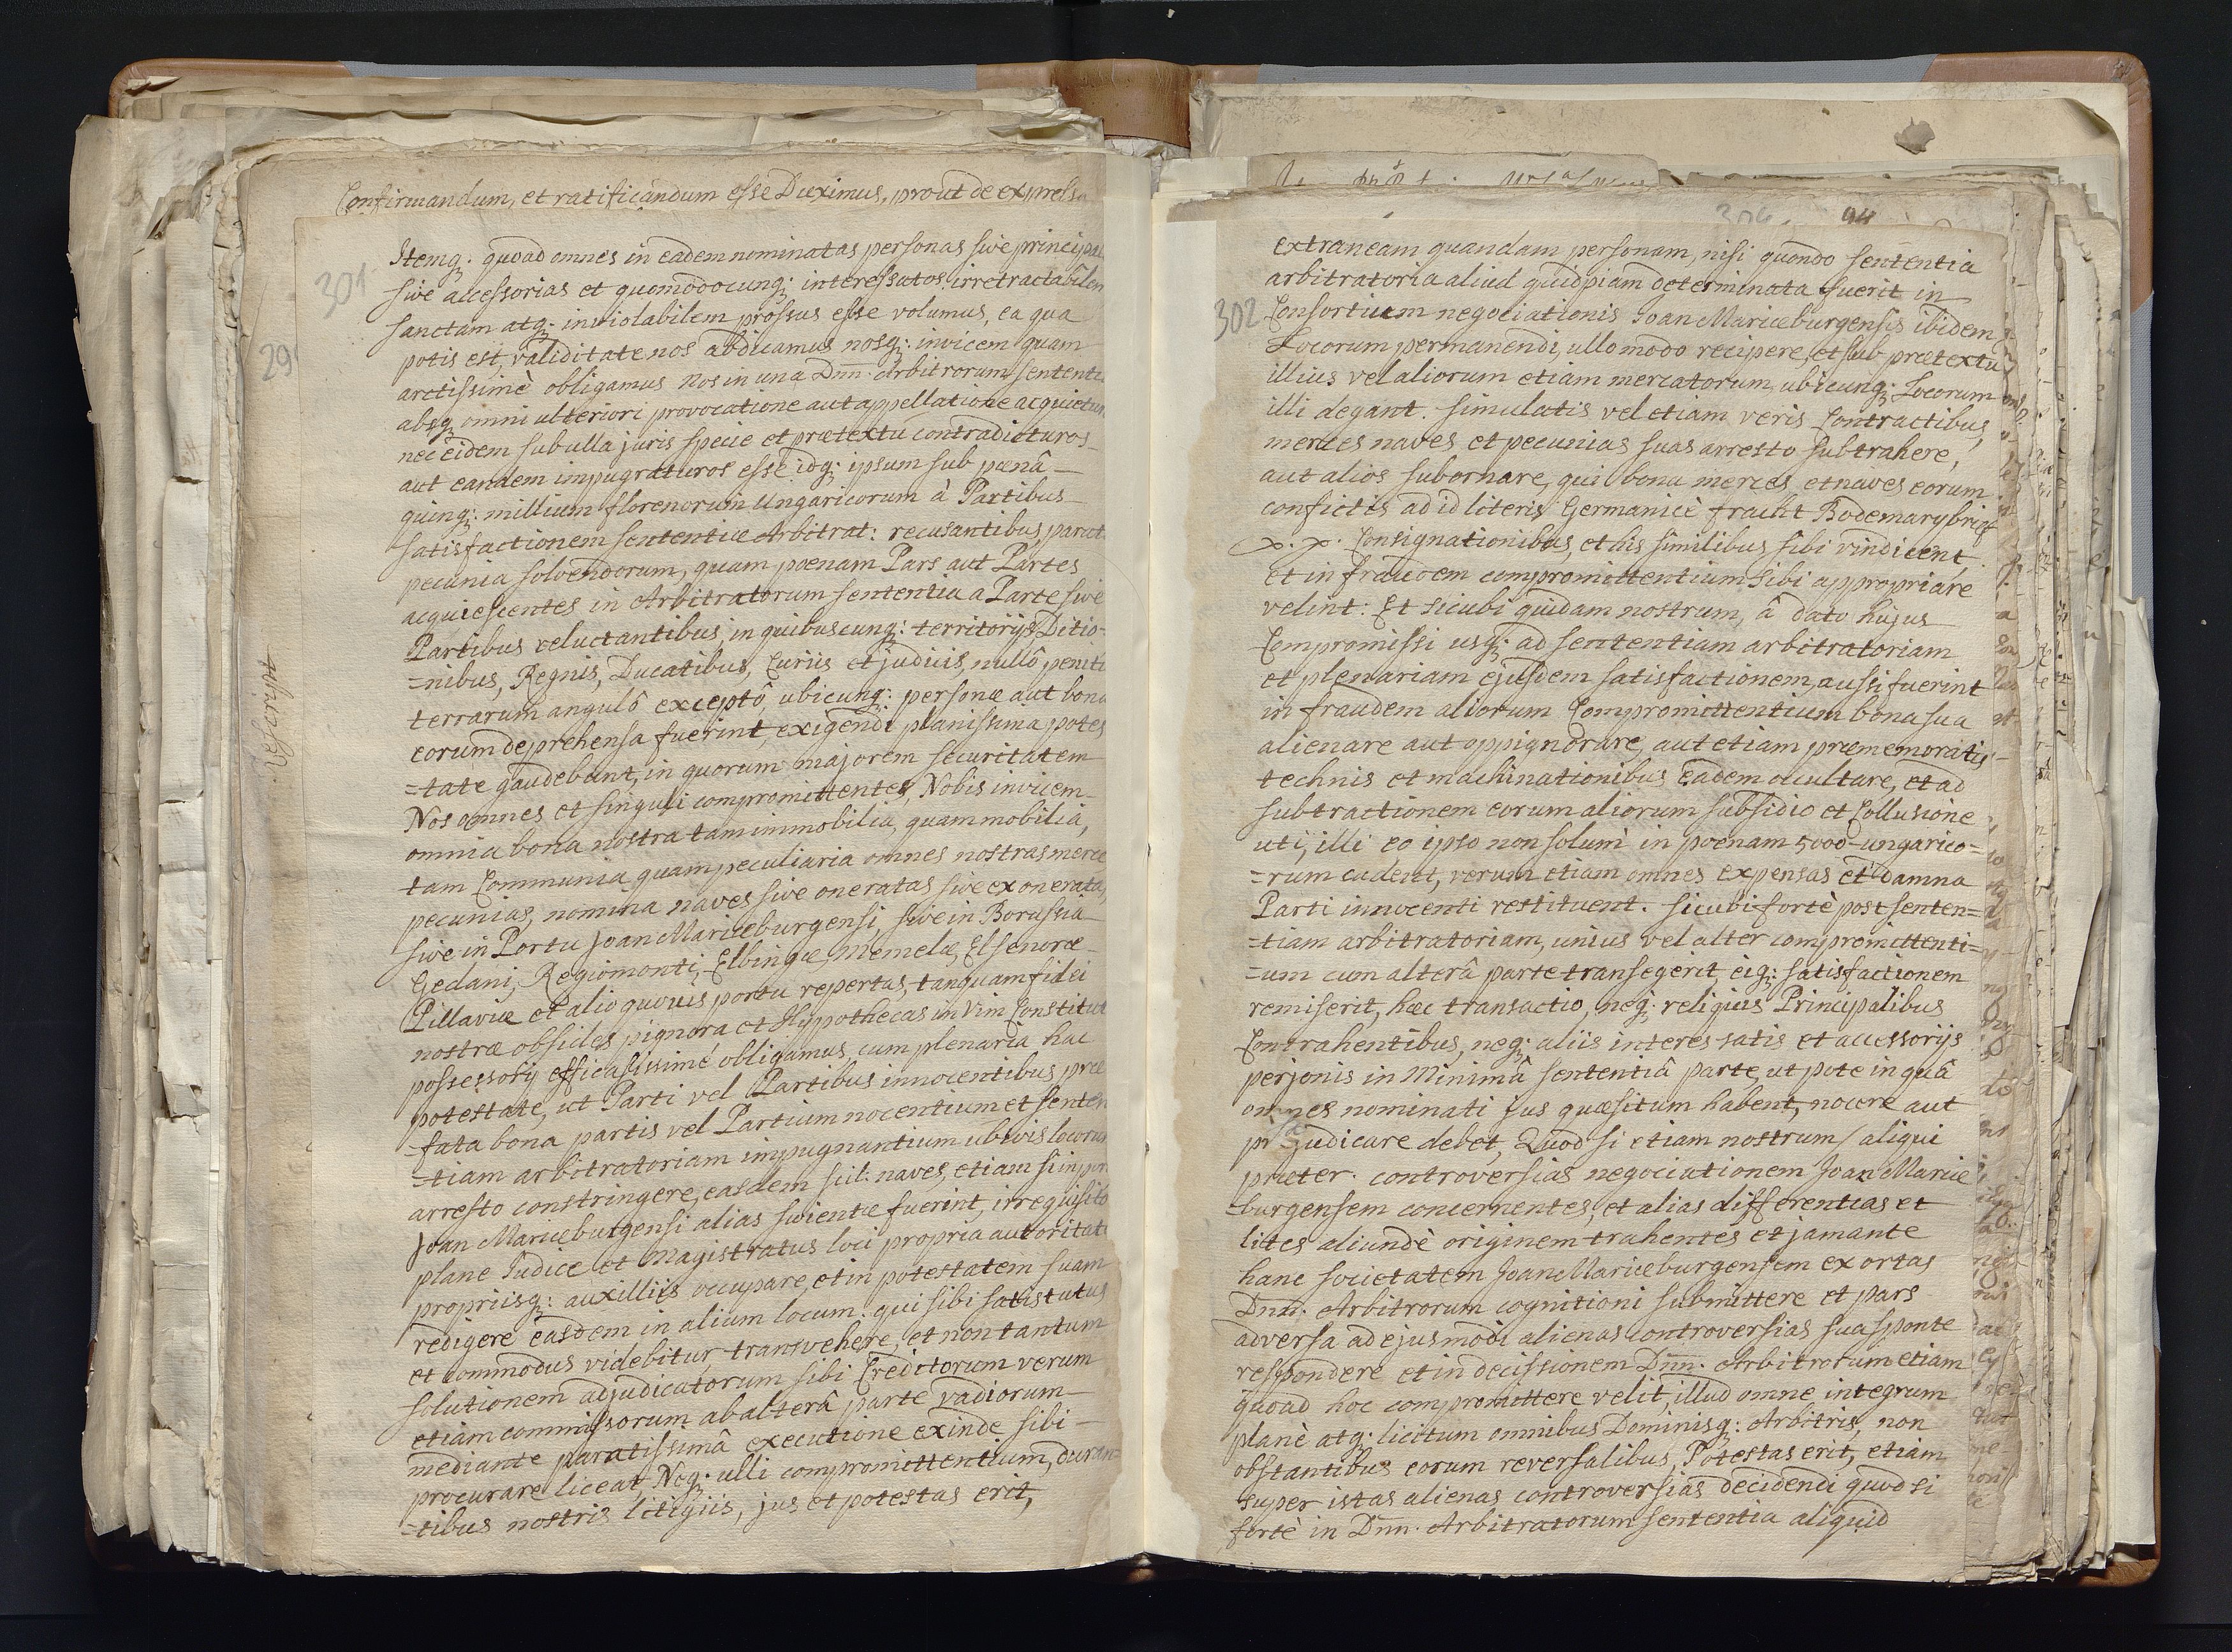 Confirmandum, et ratificandum esse Duximus, prout de expressa
301
29
Rescript
Itemq; quoad omnes in eadem nominatas personas sive principal
sive accessorias et quomodocunq; interessatos irretractabilem
sanctam atq; inviolabilem prossus esse volumus, ea qua
potis est, validitate nos abdicamus nosq; invicem quam
arctissimè obligamus nos in una Dnn. Arbitrorum sententi
absq; omni ulteriori provocatione aut appellatione acquietur
nec eidem sub ulla juris specie et prætextu contradicturos
aut eandem impugnaturos esse idq; ipsum sub pœnâ
quinq; millium florenorum Ungaricorum à Partibus
satisfactionem sententiæ Arbitrat: recusantibus, parat
pecunia solvendorum, quam poenam Pars aut Partes
acquiescentes in Arbitratorum sententia a Parte sive
Partibus reluctantibus, in quibuscunq; territorijs Ditio=
=nibus, Regnis, Ducatibus, Curiis et judiciis, nullô penit
terrarum angulô exceptô, ubicunq; personæ aut bona
eorum deprehensa fuerint, exigendi planissima potes
=tate gaudebunt, in quorum majorem securitatem
Nos omnes et singuli compromittentes, Nobis invicem
omnia bona nostra tam immobilia, quam mobilia,
tam Communia quam peculiaria omnes nostras merce
pecunias, nomina naves sive oneratas sive exonerata,
sive in Portu Joan Mariæburgensi, sive in Borussia
Gedani, Regiomonti, Elbingæ, Memelæ, Elsenoræ
Pillaviæ et alio quovis portu repertas, tanquam fidei
nostræ obsides pignora et Hypothecas in Vim Constitut
possessorij efficasissimé obligamus, cum plenaria hac
potestate, ut Parti vel Partibus innocentibus præ
=fata bona partis vel Partium nocentium et senten
=tiam arbitratoriam impugnantium ubivis locorum
arresto constringere, easdem scil: naves, etiam si in por
Joan Mariæburgensi alias sirientæ fuerint, irrequisito
plane Judice et Magistratus loci propria autoritate
propriisq; auxilliis occupare, et in potestatem suam
redigere easdem in alium locum. qui sibi satis tutus
et commodus videbitur, transvehere, et non tantum
solutionem adjudicatorum sibi Creditorum verum
etiam commissorum ab alterâ parte vadiorum
mediante paratissimâ executione exinde sibi
procurare liceat, Neq; ulli compromittentium, duran=
=tibus nostris litigiis, jus et potestas erit,
306. 94
302
extraneam quandam personam, nisi quando sententia
arbitratoria aliud quidpiam determinata fuerit in
Consortium negociationis Joan Mariæburgensis ibidem
Locorum permanendi, ullo modo recipere, et sub prætextu
illius vel aliorum etiam mercatorum, ubicunq; Locorum
illi degant. simulatis vel etiam veris Contractibus,
merces naves et pecunias suas arresto subtrahere,
aut alios subornare, qui bona merces et naves eorum
confictis ad id literis Germanicè fracht Bodemarybrief
x. x. Consignationibus, et his similibus sibi vindicent
et in fraudem compromittentium sibi appropriare
velint: Et sicubi quidam nostrum, â dato hujus
Compromissi usq; ad sententiam arbitratoriam
et plenariam ejusdem satisfactionem, aussi fuerint
in fraudem aliorum Compromittentium bona sua
alienare aut oppignorare, aut etiam præmemoratis
technis et machinationibus Eadem occultare, et ad
subtractionem eorum aliorum subsidio et Collusione
uti, illi eo ipso non solum in poenam 5000-ungarico=
=rum cadent, verum etiam omnes expensas et damna
Parti innocenti restituent. Sicubi fortè post senten=
=tiam arbitratoriam, unius vel alter compromittenti=
=um cum alterâ parte transegerit, eiq; satisfactionem
remiserit, hæc transactio, neq; reliquis Principalibus
Contrahentibus, neq; aliis interessatis et accessorijs
personis in Minimâ sententiâ parte, ut pote in quâ
omnes nominati jus quæsitum habent, nocere aut
præjudicare debet, Quod si etiam nostrum / aliqui
præter. controversias negociationem Joan Mariæ
=burgensem concernentes, et alias differentias et
lites aliundè originem trahentes et jam ante
hanc societatem Joan Mariæburgensem exortas
Dnn. Arbitrorum cognitioni submittere et pars
adversa ad ejusmodi alienas controversias sua sponte
respondere et in decissionem Dnn. Arbitrorum etiam
quoad hoc compromittere velit, illud omne integrum
planè atq; licitum omnibus Dominisq; Arbitris, non
obstantibus eorum reversalibus, Potestas erit, etiam
super istas alienas controversias decidendi quod si
fortè in Dnn. Arbitratorum sententia aliquid